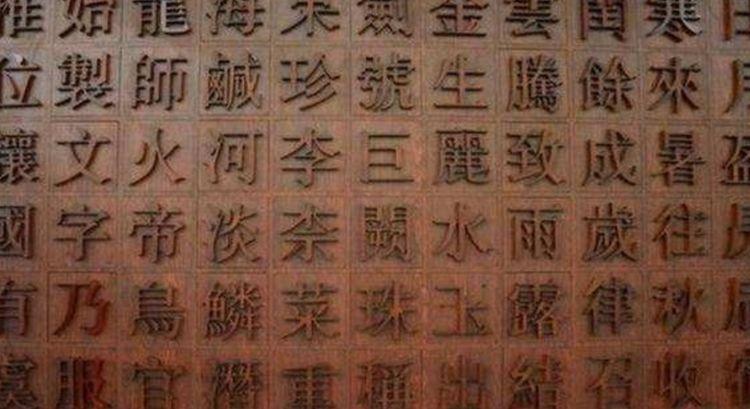 盈
寒來暑往秋收
閏餘成歲律召
雲騰致雨露結
金生麗水玉出
劍號巨闕珠稱
果珍李柰菜重
海鹹河淡鱗潛
龍師火帝鳥官
始製文字乃服
推位讓國有虞